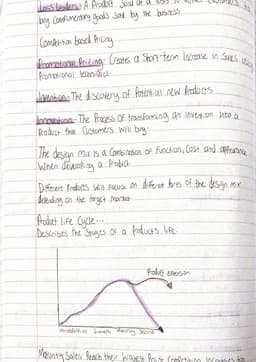 Loss Leaders: A Product Sold at a loss to
buy complimentary goals sold by the business
Competition based Pricing
Promotional Pricing: Creates a Short-term Increase in Sales using
Promotional techniques
Invention: The discovery of Potential new Products
Innovation: The Process OF transforming an invention into a
Product that Customers will buy.
The design mix is a Combination of Function, Cost and appearance
When developing a Product
Different Products will Focus on different Parts of the design mix
depending on the target Market
Product life Cycle...
Describes the Stages of a Products life.
Product extension
Introduction Growth Maturity Decline
Maturity Sales Reach their highest Point Competition increases